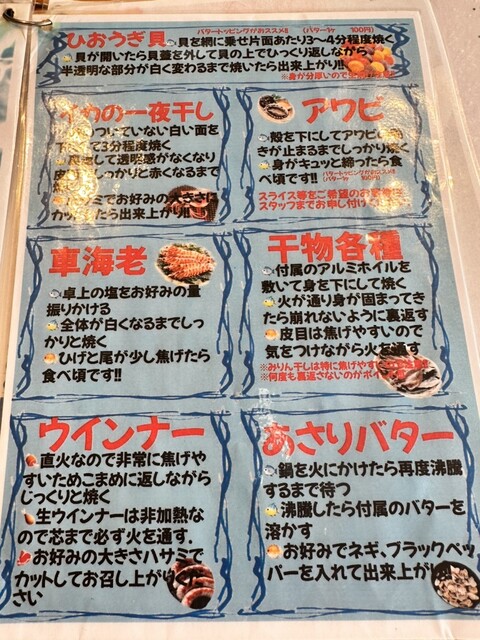 ひおうぎ貝
バタートッピングがオススメ!!
(バター1ヶ 100円)
貝を網に乗せ片面あたり3〜4分程度焼く
貝が開いたら貝蓋を外して貝の上でひっくり返しながら、
半透明な部分が白く変わるまで焼いたら出来上がり!!
※身が分厚いので
の一夜干し
ついていない白い面を
して3分程度焼く
して透明感がなくなり
しっかりと赤くなるまで
ミでお好みの大きさに
カットしたら出来上がり!!
アワビ
殻を下にしてアワビの
きが止まるまでしっかり焼く
身がキュッと締ったら食
べ頃です!!
バタートッピングがおススメ!!
(バター1ヶ 100円)
スライス等をご希望のお客様は
スタッフまでお申し付け
車海老
卓上の塩をお好みの量
振りかける
全体が白くなるまでしっ
かりと焼く
ひげと尾が少し焦げたら
食べ頃です!!
干物各種
付属のアルミホイルを
敷いて身を下にして焼く
火が通り身が固まってき
たら崩れないように裏返す
皮目は焦げやすいので
気をつけながら火を通す
※みりん干しは特に焦げやす
※何度も裏返さないのがポイ
ウインナー
直火なので非常に焦げや
すいためこまめに返しながら
じっくりと焼く
生ウインナーは非加熱な
ので芯まで必ず火を通す.
お好みの大きさハサミで
カットしてお召し上がりくだ
さい
あさりバター
鍋を火にかけたら再度沸騰
するまで待つ
沸騰したら付属のバターを
溶かす
お好みでネギ、ブラックペッ
パーを入れて出来上がり